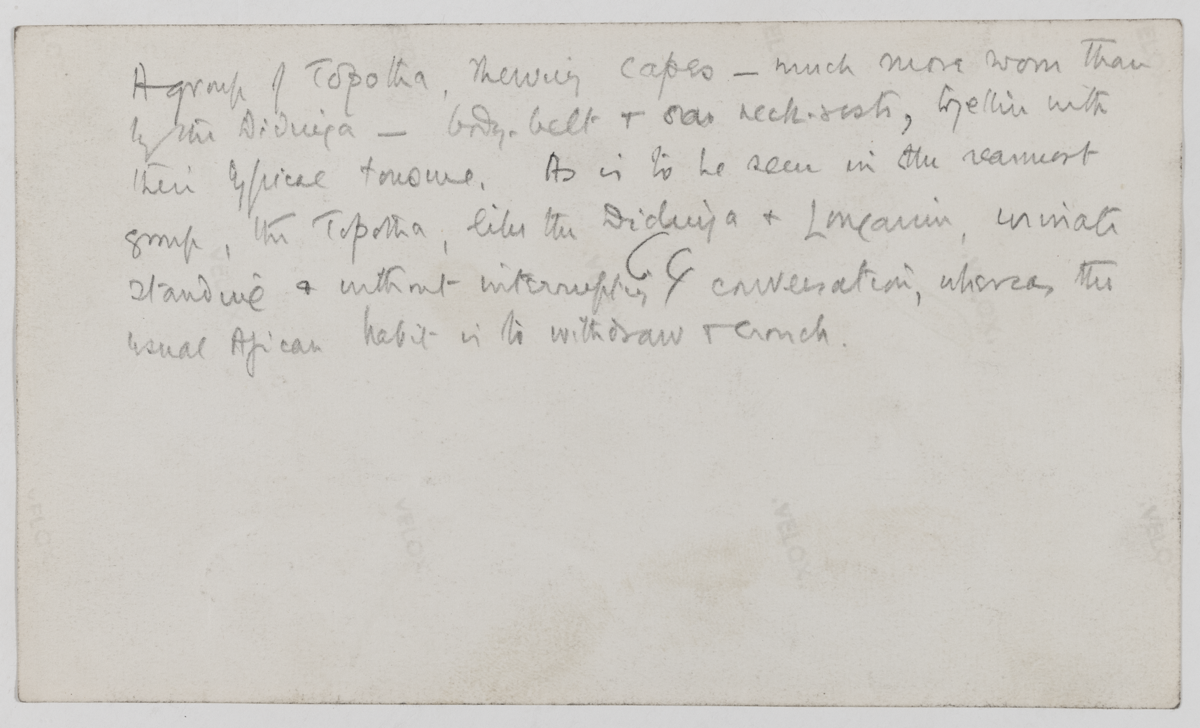 A group of Topotha, shewing capes – much more worn than
by the Didinga – body-belt & neck-rests, together with
their typical tonsure. As is to be seen in the rearmost
group, the Topotha, like the Didinga & Longarim, urinate
standing & without interrupting conversation, whereas the
usual African habit is to withdraw & crouch.
VELOX
VELOX
VELOX
VELOX